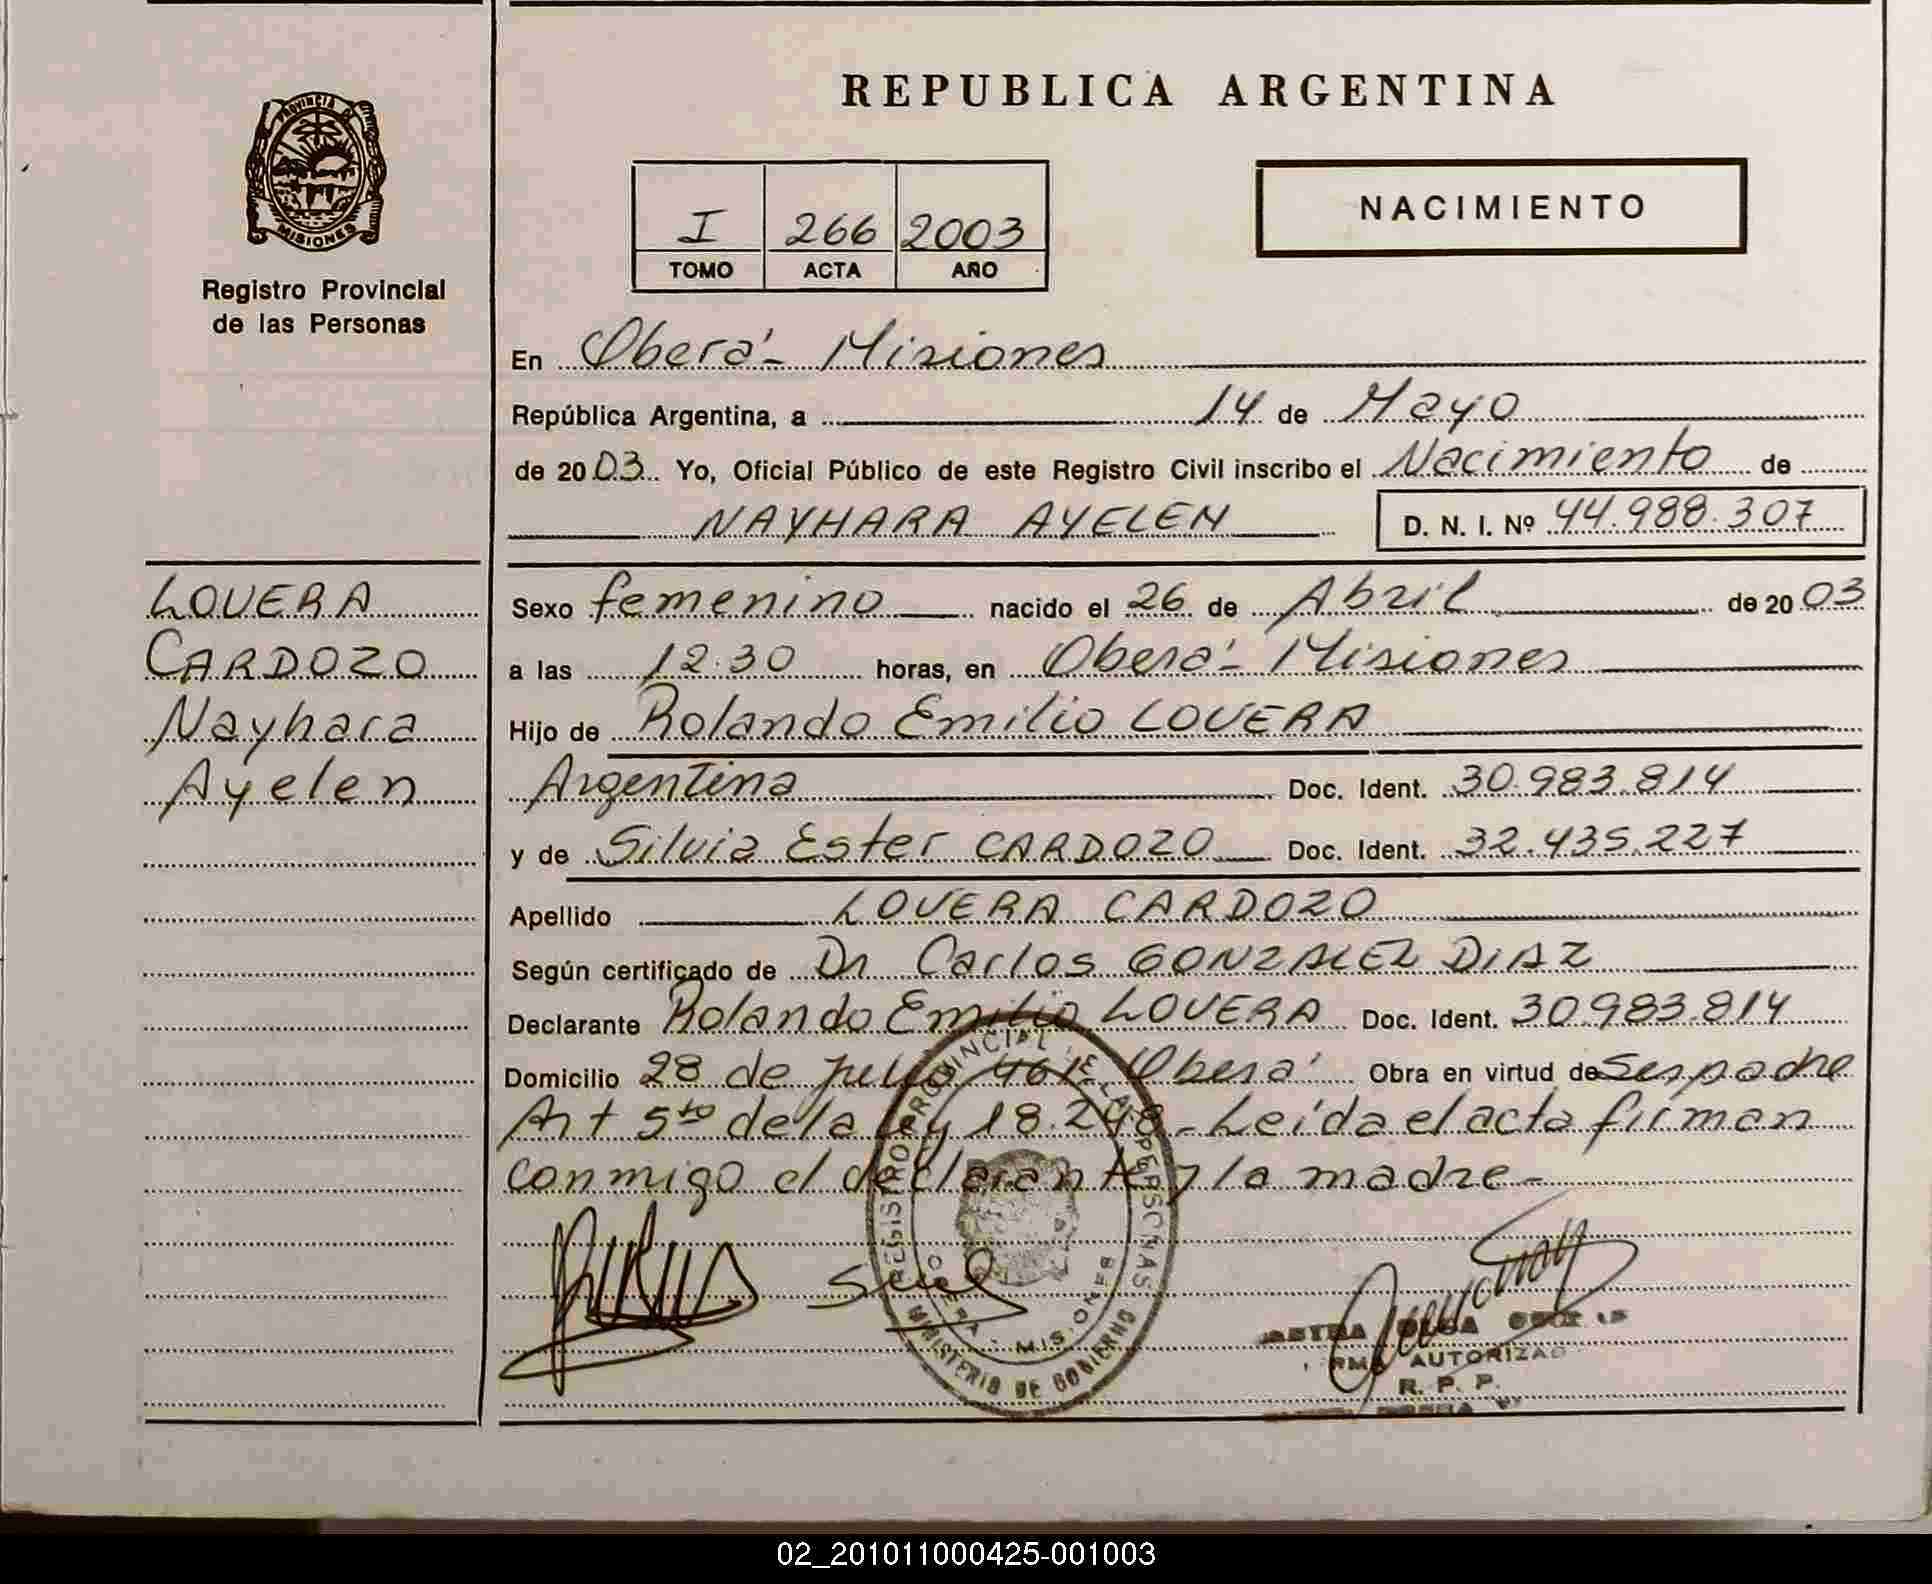 REPUBLICA ARGENTINA
PROVINCIA DE
MISIONES
Registro Provincial
de las Personas
I 266 2003
TOMO ACTA AÑO
NACIMIENTO
En Oberá - Misiones
República Argentina, a 14 de Mayo
de 2003 Yo, Oficial Público de este Registro Civil inscribo el Nacimiento de
NAYHARA AYELEN D. N. I. Nº 44.988.307
LOVERA
CARDOZO
Nayhara
Ayelen
Sexo femenino nacido el 26 de Abril de 2003
a las 12.30 horas, en Oberá - Misiones
Hijo de Rolando Emilio LOVERA
Argentina Doc. Ident. 30.983.814
y de Silvia Ester CARDOZO Doc. Ident. 32.435.227
Apellido LOVERA CARDOZO
Según certificado de Dr Carlos GONZALEZ DIAZ
Declarante Rolando Emilio LOVERA Doc. Ident. 30.983.814
Domicilio 28 de Julio 461 Oberá Obra en virtud de Ser padre
Art 5to de la ley 18.248 - Leída el acta firman
conmigo el declarante y la madre -
REGISTRO PROVINCIAL DE LAS PERSONAS
OBERA - MISIONES
MINISTERIO DE GOBIERNO
OLGA
AUTORIZAD
R. P. P.
02_201011000425-001003